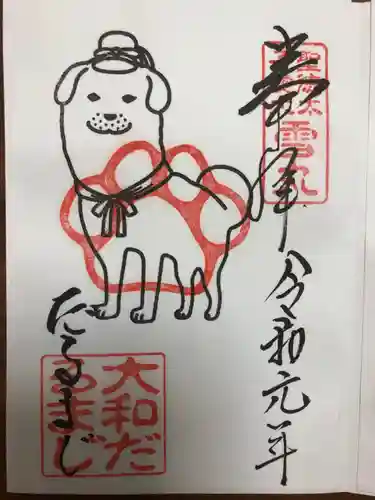 奉拝
令和元年
聖徳太
雪丸
だるまじ
大和だ
るまじ